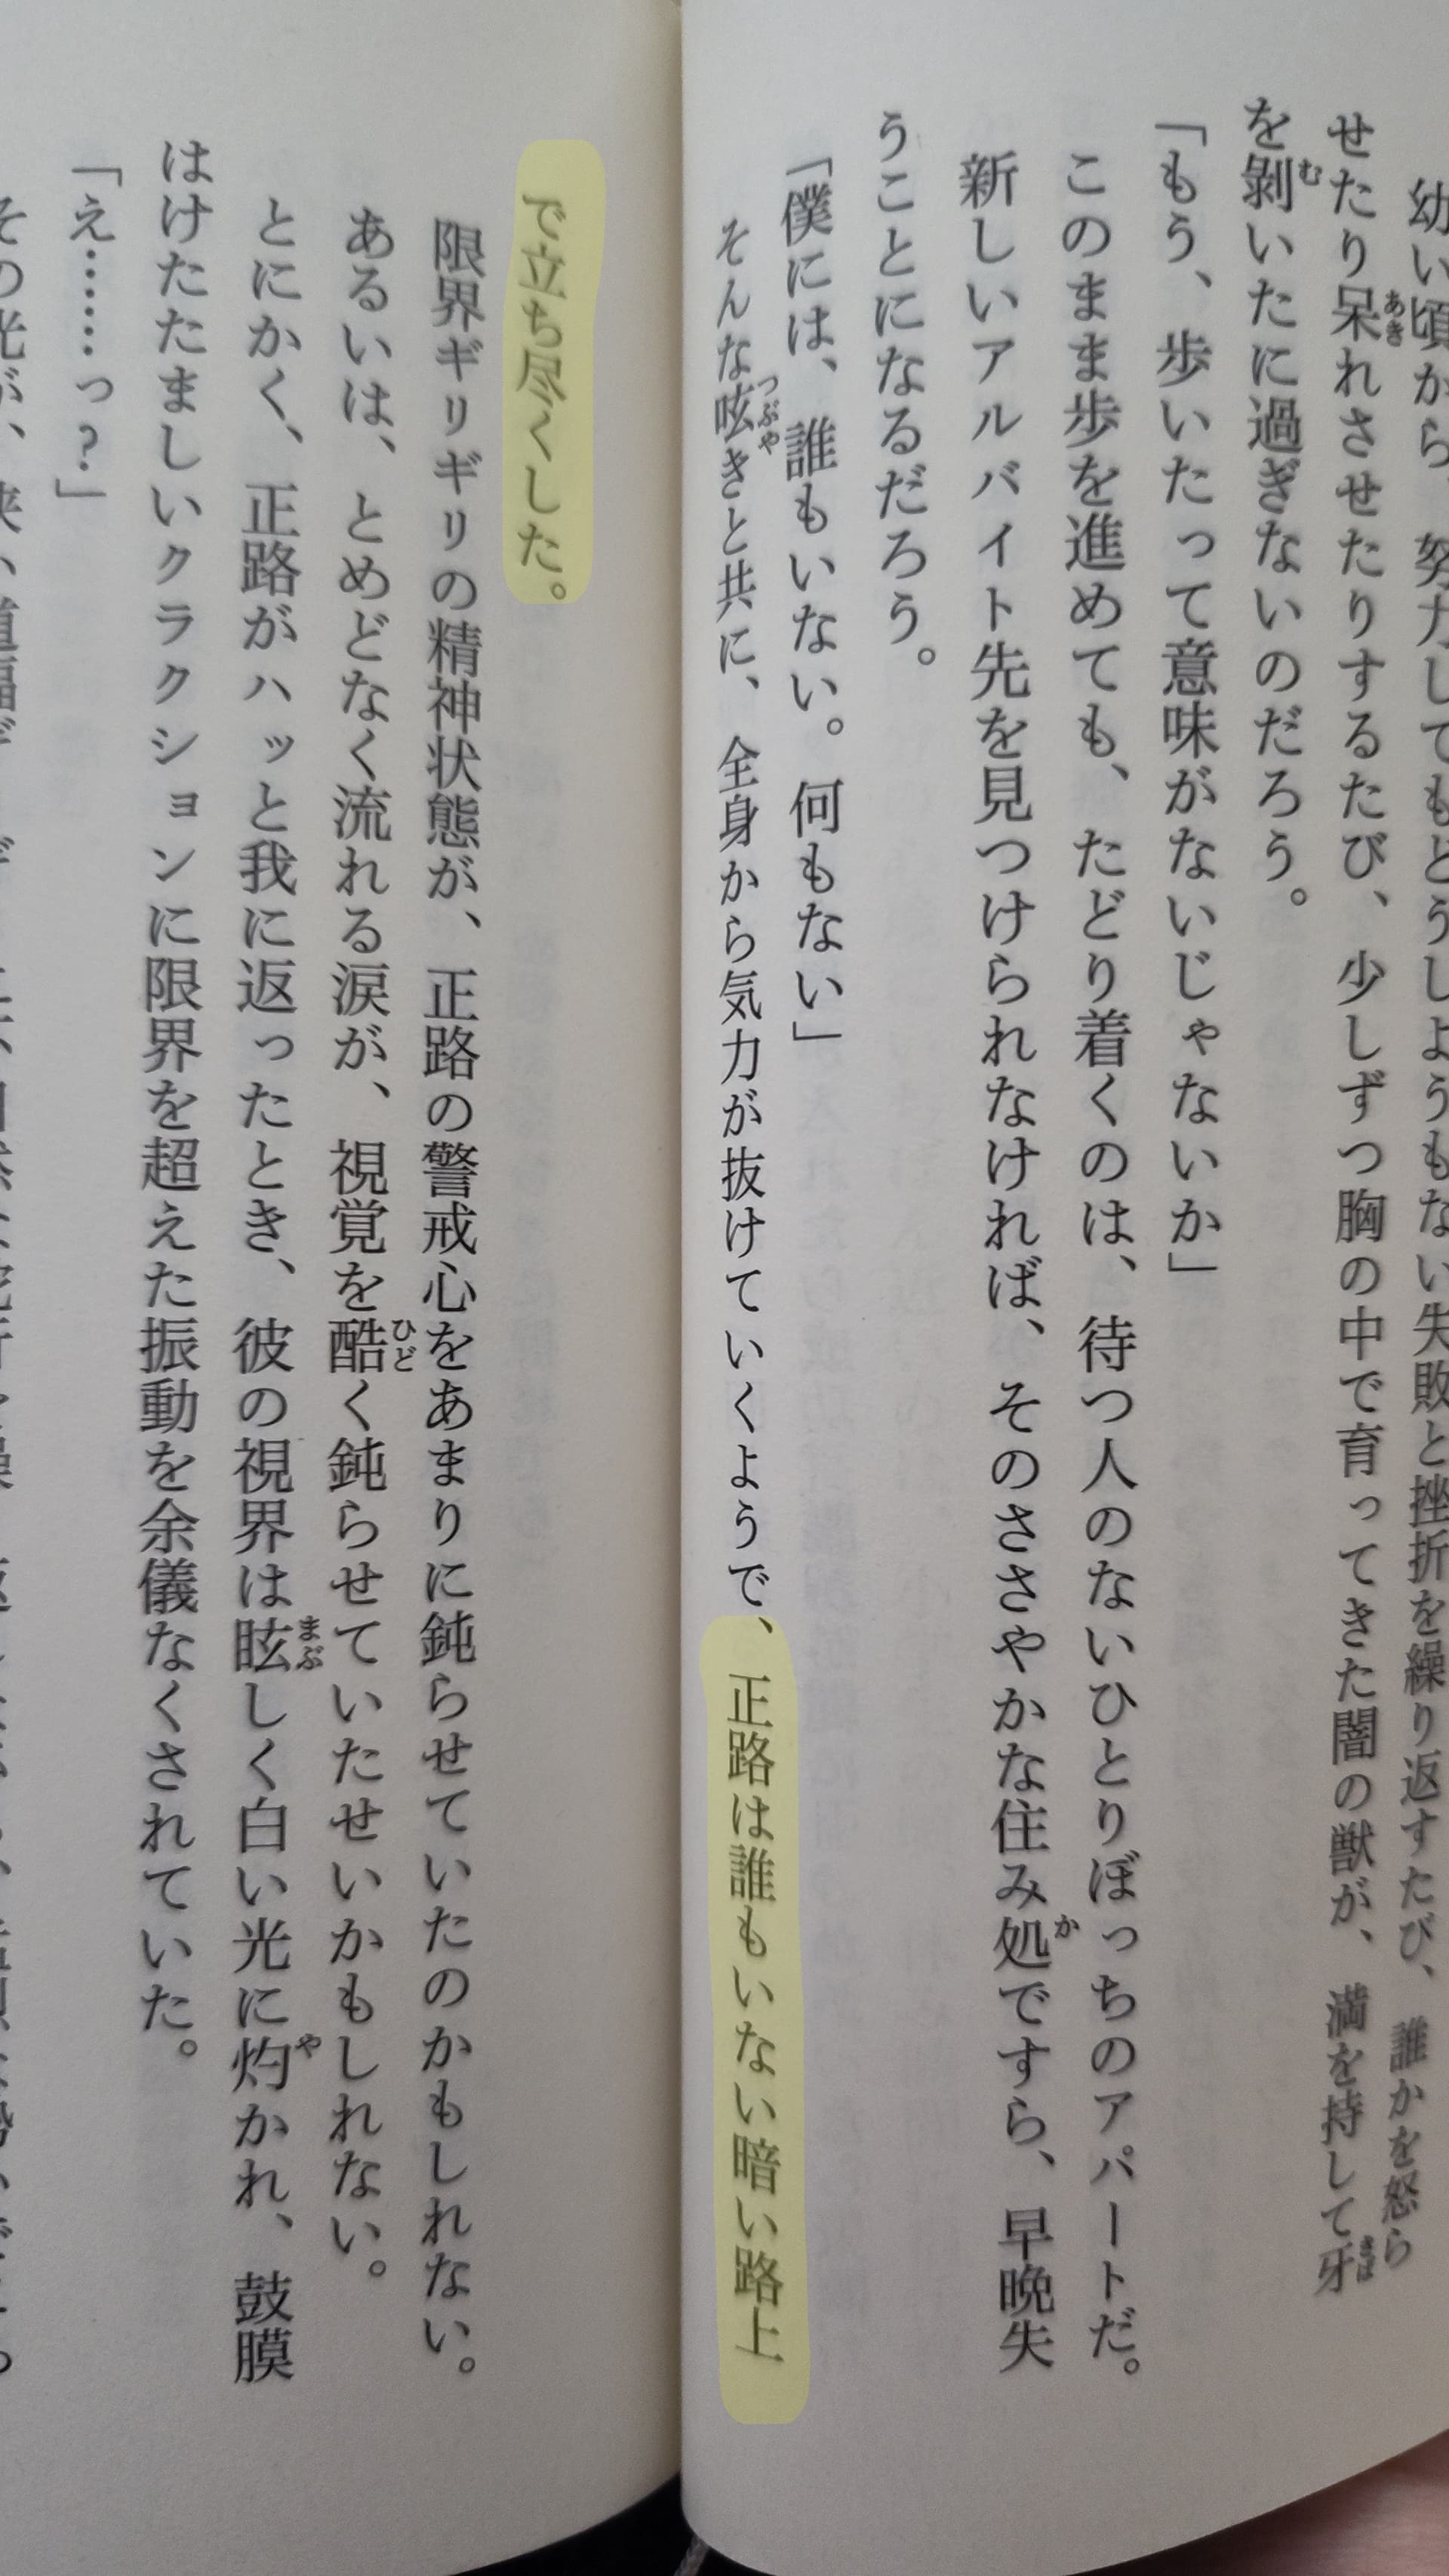 幼い頃から、努力してもどうしようもない失敗と挫折を繰り返すたび、誰かを怒ら
せたり呆れさせたりするたび、少しずつ胸の中で育ってきた闇の獣が、満を持して牙
を剥いたに過ぎないのだろう。
「もう、歩いたって意味がないじゃないか」
このまま歩を進めても、たどり着くのは、待つ人のないひとりぼっちのアパートだ。
新しいアルバイト先を見つけられなければ、そのささやかな住み処ですら、早晩失
うことになるだろう。
「僕には、誰もいない。何もない」
そんな呟きと共に、全身から気力が抜けていくようで、正路は誰もいない暗い路上
で立ち尽くした。
限界ギリギリの精神状態が、正路の警戒心をあまりに鈍らせていたのかもしれない。
あるいは、とめどなく流れる涙が、視覚を酷く鈍らせていたせいかもしれない。
とにかく、正路がハッと我に返ったとき、彼の視界は眩しく白い光に灼かれ、鼓膜
はけたたましいクラクションに限界を超えた振動を余儀なくされていた。
「え……っ?」
その光が、狭い道幅